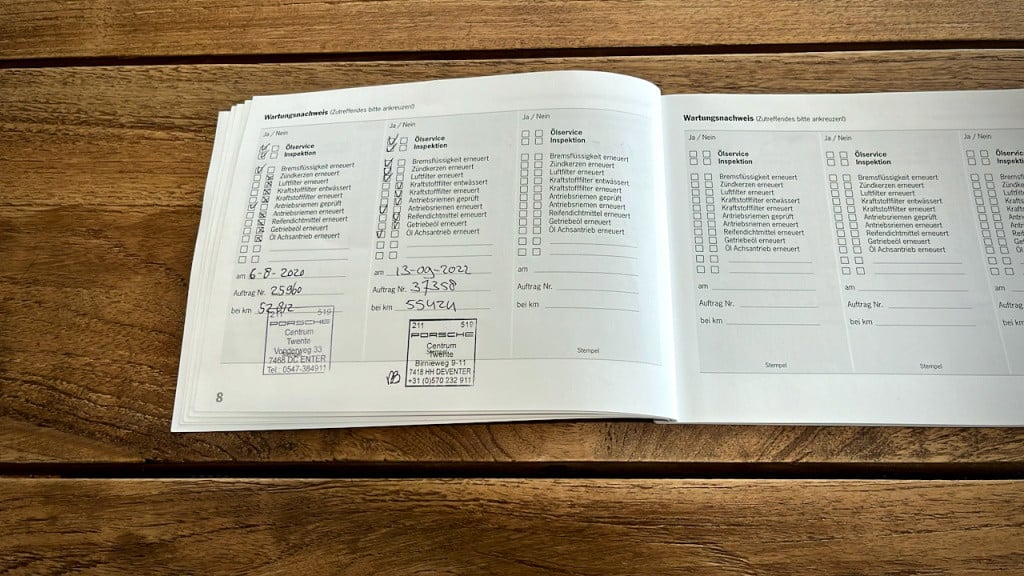 Wartungsnachweis (Zutreffendes bitte ankreuzen!)
Ja / Nein
Ölservice
Inspektion
Bremsflüssigkeit erneuert
Zündkerzen erneuert
Luftfilter erneuert
Kraftstofffilter entwässert
Kraftstofffilter erneuert
Antriebsriemen geprüft
Antriebsriemen erneuert
Reifendichtmittel erneuert
Getriebeöl erneuert
Öl Achsantrieb erneuert
am 6-8-2020
Auftrag Nr. 25960
bei km
211 519
PORSCHE
Centrum
Twente
Vonderweg 33
7468 DC ENTER
Tel.: 0547-384911
8
Ja / Nein
Ölservice
Inspektion
Bremsflüssigkeit erneuert
Zündkerzen erneuert
Luftfilter erneuert
Kraftstofffilter entwässert
Kraftstofffilter erneuert
Antriebsriemen geprüft
Antriebsriemen erneuert
Reifendichtmittel erneuert
Getriebeöl erneuert
Öl Achsantrieb erneuert
am 13-09-2022
Auftrag Nr. 37358
bei km 55424
211 519
PORSCHE
Centrum
Twente
Birnieweg 9-11
7418 HH DEVENTER
+31 (0)570 232 911
Ja / Nein
Ölservice
Inspektion
Bremsflüssigkeit erneuert
Zündkerzen erneuert
Luftfilter erneuert
Kraftstofffilter entwässert
Kraftstofffilter erneuert
Antriebsriemen geprüft
Antriebsriemen erneuert
Reifendichtmittel erneuert
Getriebeöl erneuert
Öl Achsantrieb erneuert
am
Auftrag Nr.
bei km
Stempel
Wartungsnachweis (Zutreffendes bitte ankreuzen!)
Ja / Nein
Ölservice
Inspektion
Bremsflüssigkeit erneuert
Zündkerzen erneuert
Luftfilter erneuert
Kraftstofffilter entwässert
Kraftstofffilter erneuert
Antriebsriemen geprüft
Antriebsriemen erneuert
Reifendichtmittel erneuert
Getriebeöl erneuert
Öl Achsantrieb erneuert
am
Auftrag Nr.
bei km
Stempel
Ja / Nein
Ölservice
Inspektion
Bremsflüssigkeit erneuert
Zündkerzen erneuert
Luftfilter erneuert
Kraftstofffilter entwässert
Kraftstofffilter erneuert
Antriebsriemen geprüft
Antriebsriemen erneuert
Reifendichtmittel erneuert
Getriebeöl erneuert
Öl Achsantrieb erneuert
am
Auftrag Nr.
bei km
Stempel
Ja / Nein
am
Auftrag Nr.
bei km